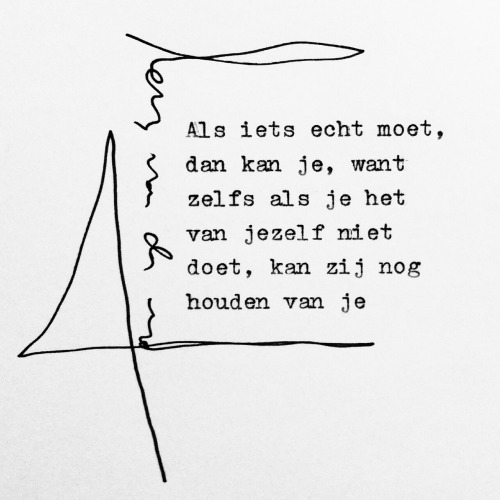 Als iets echt moet,
dan kan je, want
zelfs als je het
van jezelf niet
doet, kan zij nog
houden van je